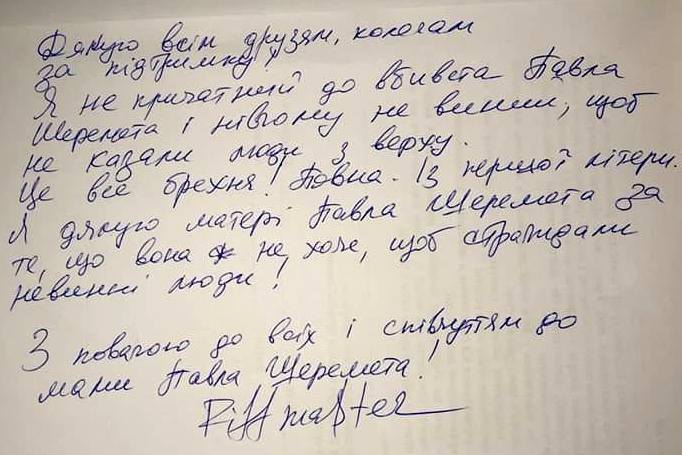 Дякую всім друзям, колегам
за підтримку!
Я не причатний до вбивста Павла
Шеремета і нівчому не винин, щоб
не казали люди з верху.
Це все брехня! Повна. Із першої літери.
Я дякую матері Павла Щеремета за
те, що вона не хоче, щоб страждали
невинні люди!
З повагою до всіх і співчуттям до
мами Павла Щеремета!
Riffmaster